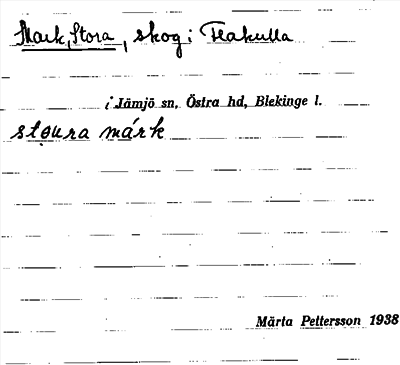 Mark, Stora, skog i Flakulla
i Jämjö sn, Östra hd, Blekinge l.
stọura márk
Märta Pettersson 1938